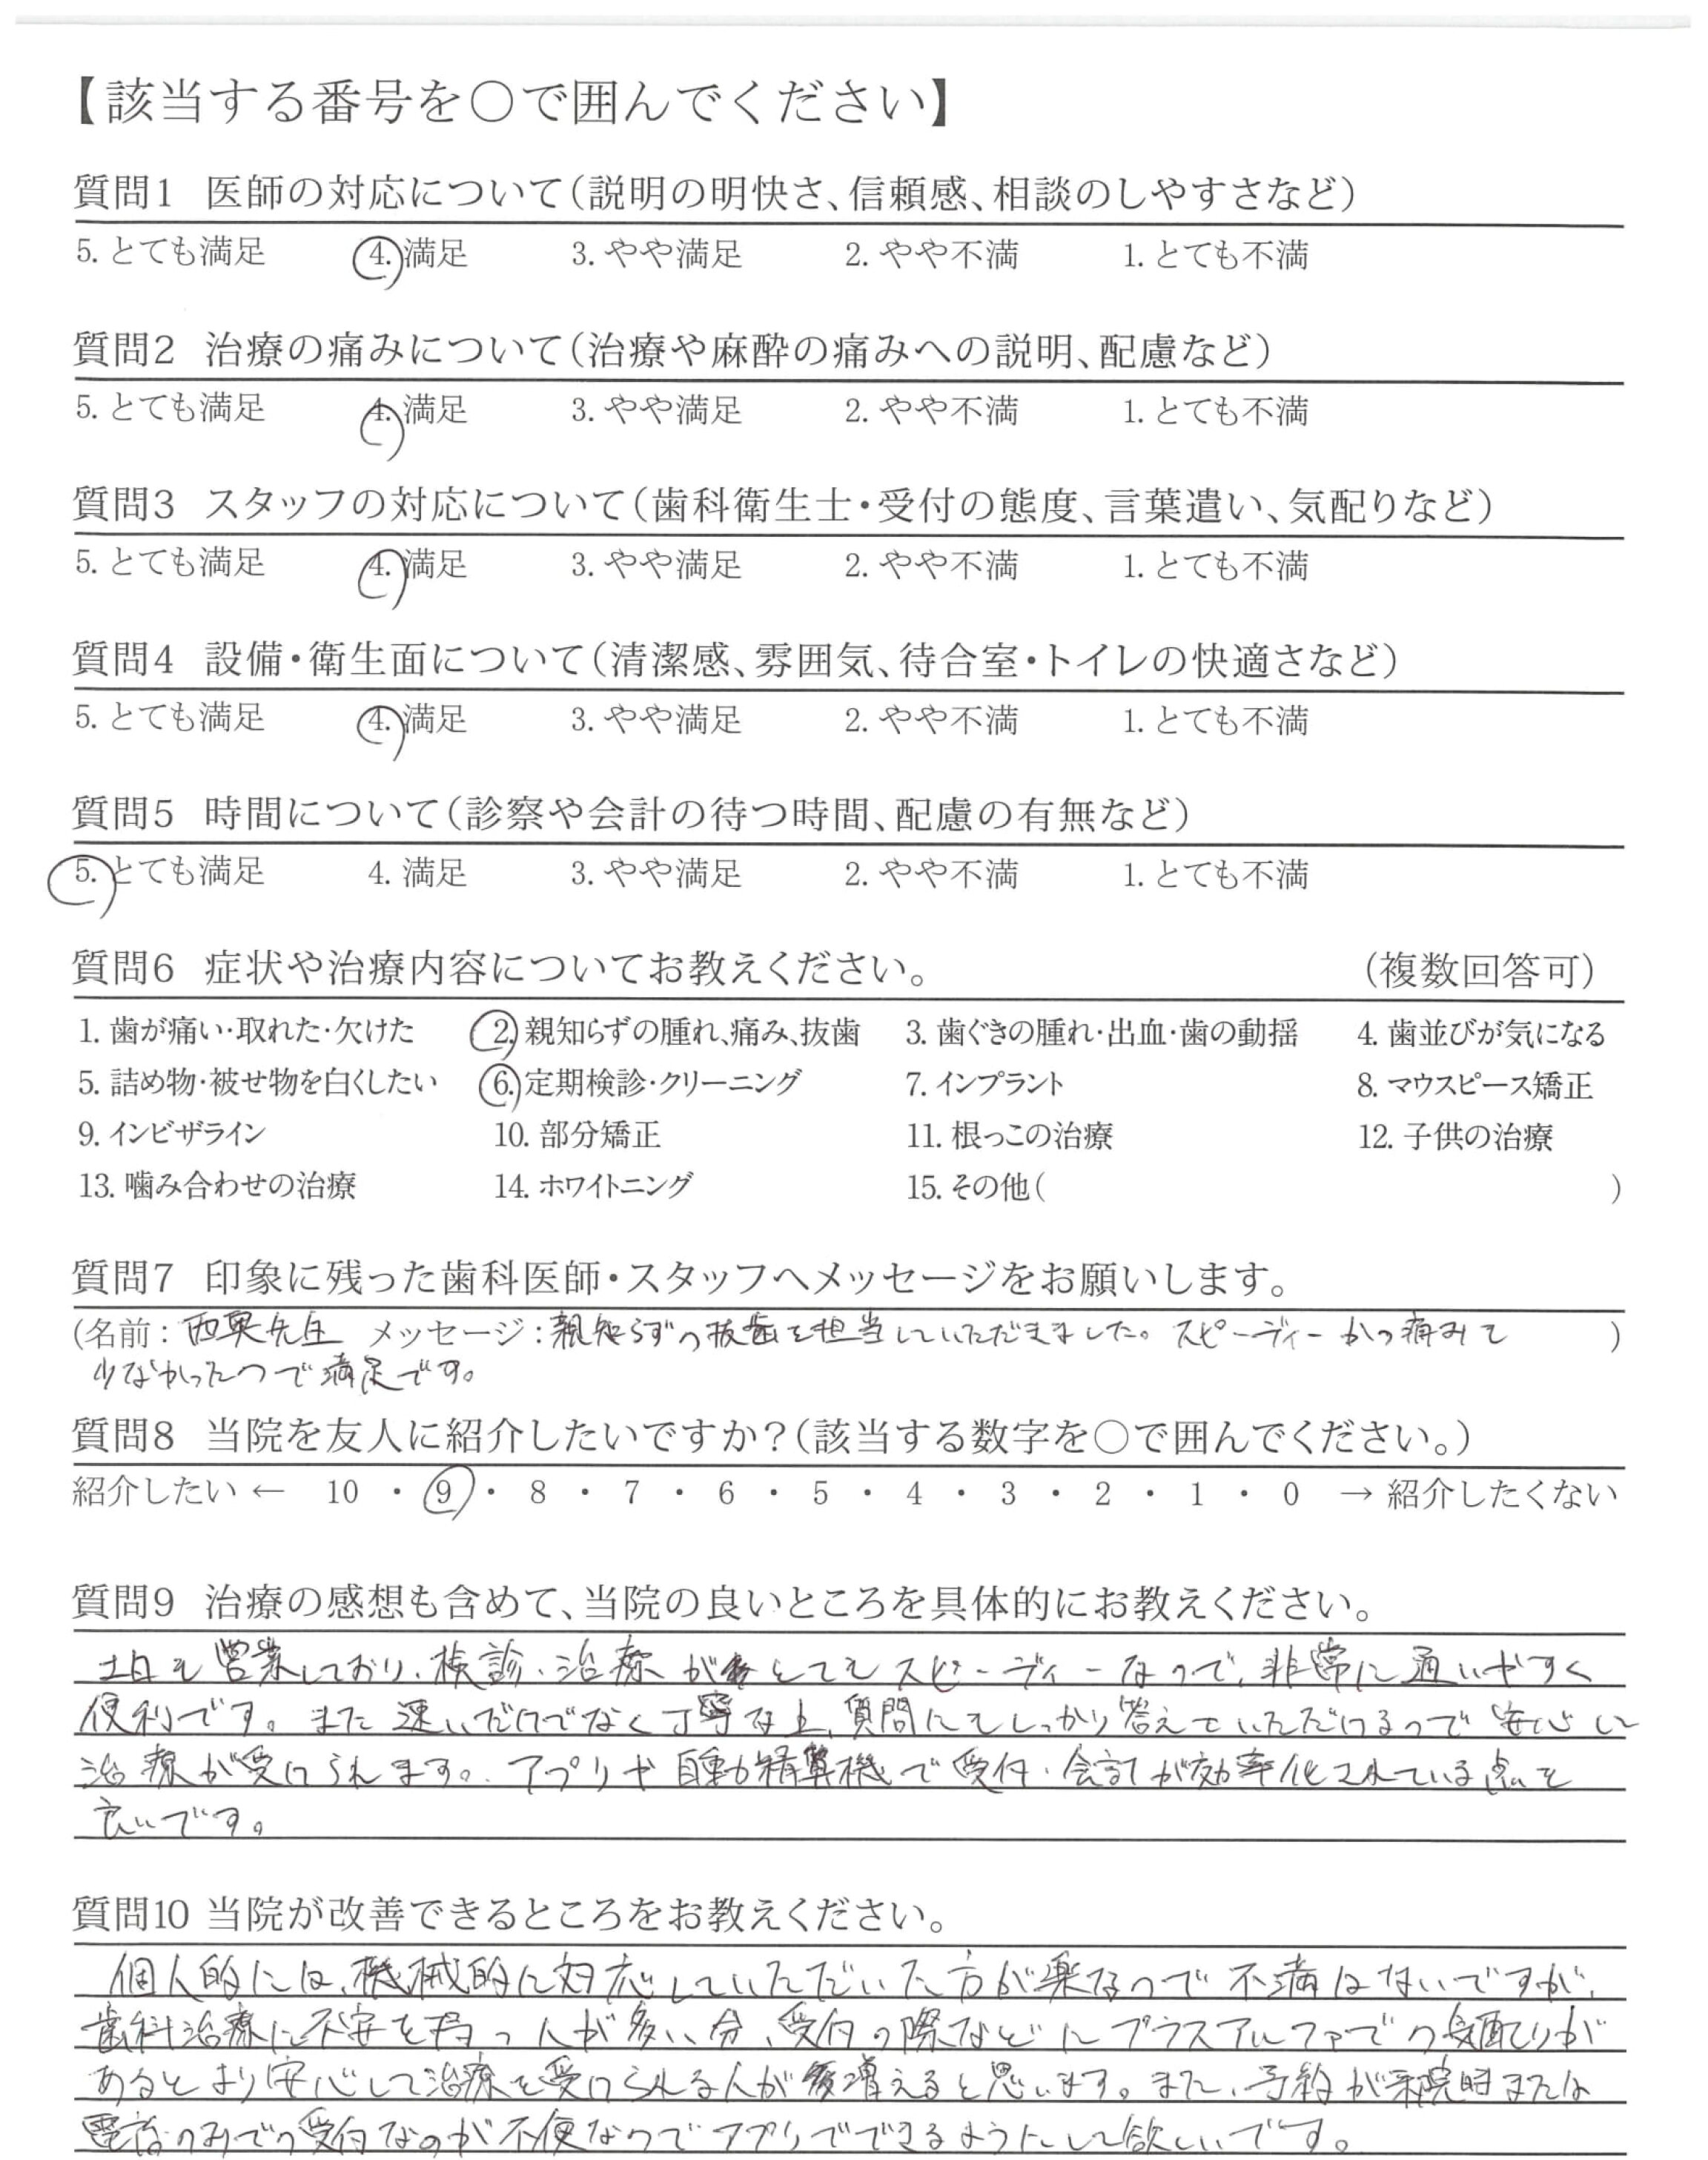 【該当する番号を〇で囲んでください】
質問1 医師の対応について（説明の明快さ、信頼感、相談のしやすさなど）
5. とても満足 4. 満足 3. やや満足 2. やや不満 1. とても不満
質問2 治療の痛みについて（治療や麻酔の痛みへの説明、配慮など）
5. とても満足 4. 満足 3. やや満足 2. やや不満 1. とても不満
質問3 スタッフの対応について（歯科衛生士・受付の態度、言葉遣い、気配りなど）
5. とても満足 4. 満足 3. やや満足 2. やや不満 1. とても不満
質問4 設備・衛生面について（清潔感、雰囲気、待合室・トイレの快適さなど）
5. とても満足 4. 満足 3. やや満足 2. やや不満 1. とても不満
質問5 時間について（診察や会計の待つ時間、配慮の有無など）
5. とても満足 4. 満足 3. やや満足 2. やや不満 1. とても不満
質問6 症状や治療内容についてお教えください。 （複数回答可）
1. 歯が痛い・取れた・欠けた 2. 親知らずの腫れ、痛み、抜歯 3. 歯ぐきの腫れ・出血・歯の動揺 4. 歯並びが気になる
5. 詰め物・被せ物を白くしたい 6. 定期検診・クリーニング 7. インプラント 8. マウスピース矯正
9. インビザライン 10. 部分矯正 11. 根っこの治療 12. 子供の治療
13. 噛み合わせの治療 14. ホワイトニング 15. その他（ ）
質問7 印象に残った歯科医師・スタッフへメッセージをお願いします。
（名前： 先生 メッセージ：親知らずの抜歯を担当していただきました。スピーディーかつ痛みも ）
少なかったので満足です。
質問8 当院を友人に紹介したいですか？（該当する数字を〇で囲んでください。）
紹介したい ← 10 ・ 9 ・ 8 ・ 7 ・ 6 ・ 5 ・ 4 ・ 3 ・ 2 ・ 1 ・ 0 → 紹介したくない
質問9 治療の感想も含めて、当院の良いところを具体的にお教えください。
土日も営業しており、検診・治療がとてもスピーディーなので、非常に通いやすく
便利です。また速いだけでなく丁寧な上、質問にもしっかり答えていただけるので安心して
治療が受けられます。アプリや自動精算機で受付・会計が効率化されている点も
良いです。
質問10 当院が改善できるところをお教えください。
個人的には、機械的に対応していただいた方が楽なので不満はないですが、
歯科治療に不安を持つ人が多い分、受付の際などにプラスアルファでの気配りが
あるとより安心して治療を受けられる人が増えると思います。また、予約が来院時または
電話のみでの受付なのが不便なのでアプリでできるようにして欲しいです。